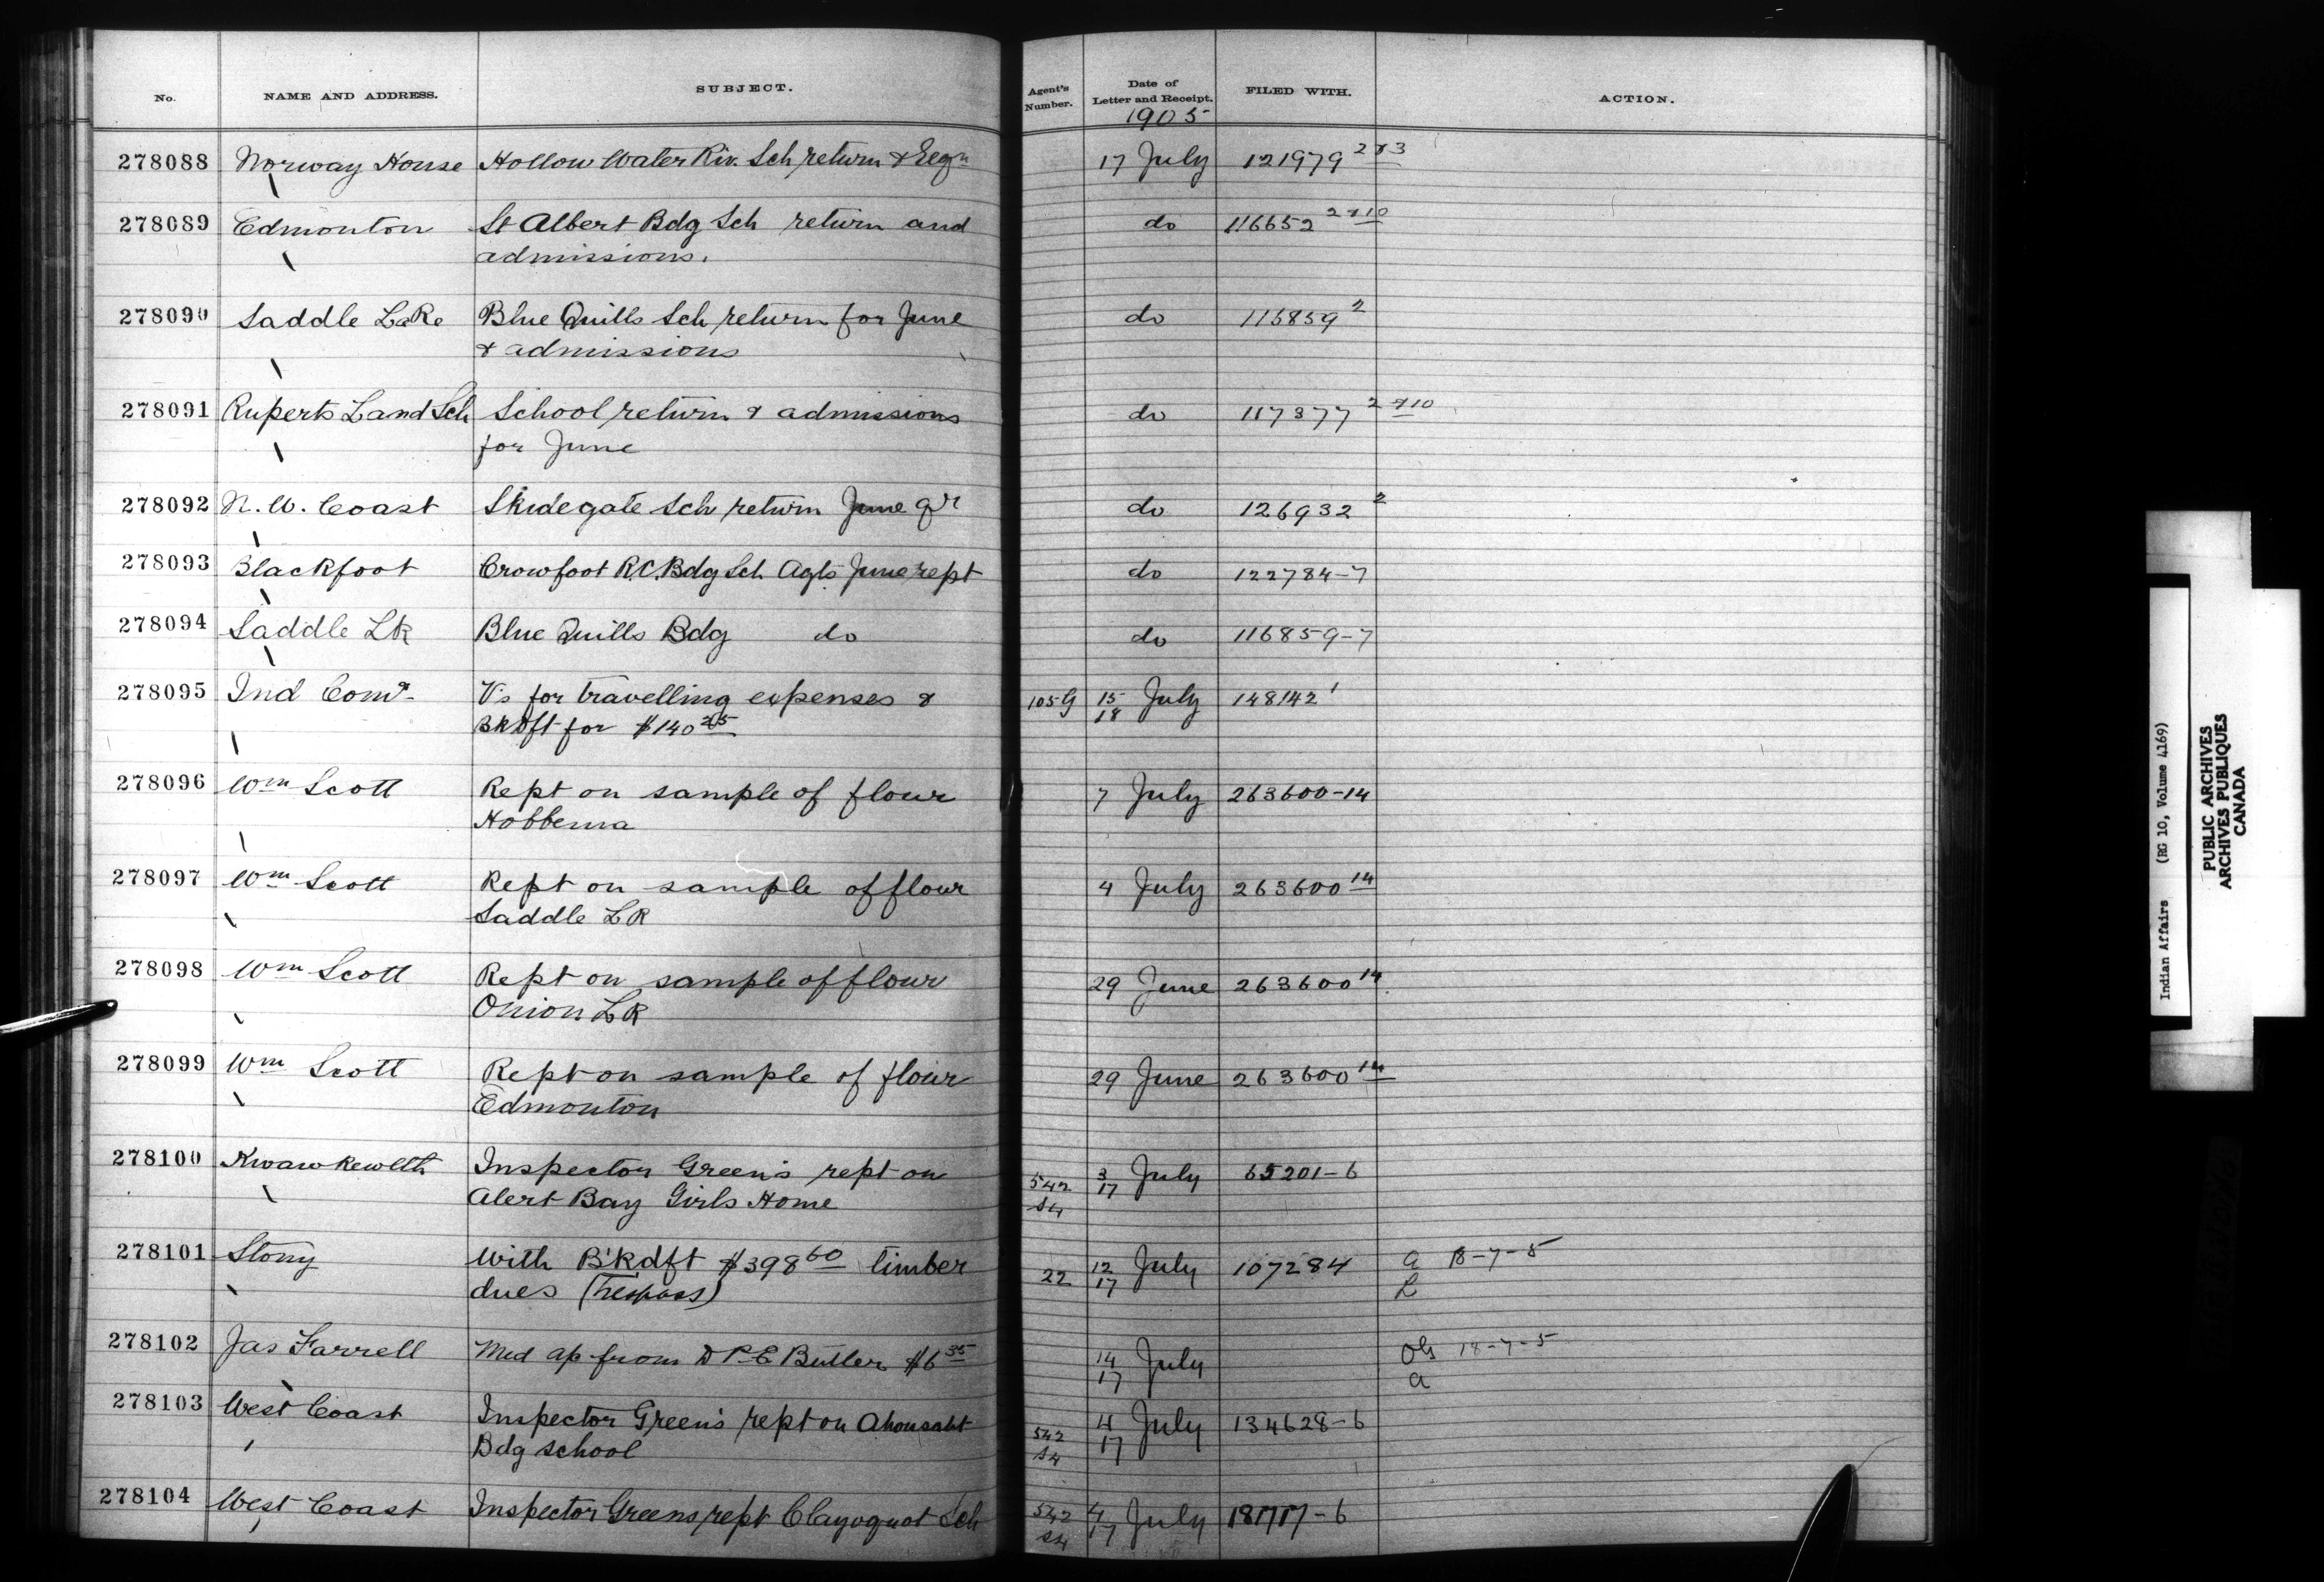 No. NAME AND ADDRESS. SUBJECT. Agent's Number. Date of Letter and Receipt. FILED WITH. ACTION.
1905
278088 Norway House Hollow Water Riv. Sch return & 17 July 121979 2&3
278089 Edmonton St Albert Bdg Sch return and do 116652 2&10
admissions.
278090 Saddle Lake Blue Quills Sch return for June do 115859 2
& admissions
278091 Ruperts Land Sch School return & admissions do 117377 2&10
for June
278092 N. W. Coast Skidegate Sch return June qr do 126932 2
278093 Blackfoot Crowfoot R.C. Bdg Sch Agts June rept do 122784-7
278094 Saddle Lk Blue Quills Bdg do do 116859-7
278095 Ind Comr Vs for travelling expenses & 105G 15 July 148142 1
Bk Dft for $140 25 18
278096 Wm Scott Rept on sample of flour 7 July 263600-14
Hobbema
278097 Wm Scott Rept on sample of flour 4 July 263600 14
Saddle Lk
278098 Wm Scott Rept on sample of flour 29 June 263600 14
Onion Lk
278099 Wm Scott Rept on sample of flour 29 June 263600 14
Edmonton
278100 Kwawkewlth Inspector Green's rept on 542 3 July 65201-6
Alert Bay Girls Home S4 17
278101 Stony With B'k dft $398 60 timber 22 12 July 107284 a 18-7-5
dues (Trespass) 17 L
278102 Jas Farrell Med ap from D P. E Butler $6 35 14 July 18-7-5
17 a
278103 West Coast Inspector Green's rept on Ahousaht 542 4 July 134628-6
Bdg school S4 17
278104 West Coast Inspector Greens rept Clayoquot Sch 542 4 July 181717-6
S4 17
Indian Affairs (RG 10, Volume 4169)
PUBLIC ARCHIVES
ARCHIVES PUBLIQUES
CANADA